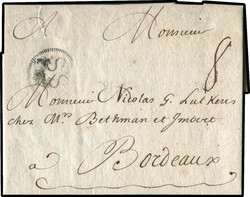 A Monsieur
8
Monsieur Nicolas G. Lutkens
chez Mrs. Bethman et Imbert
à Bordeaux